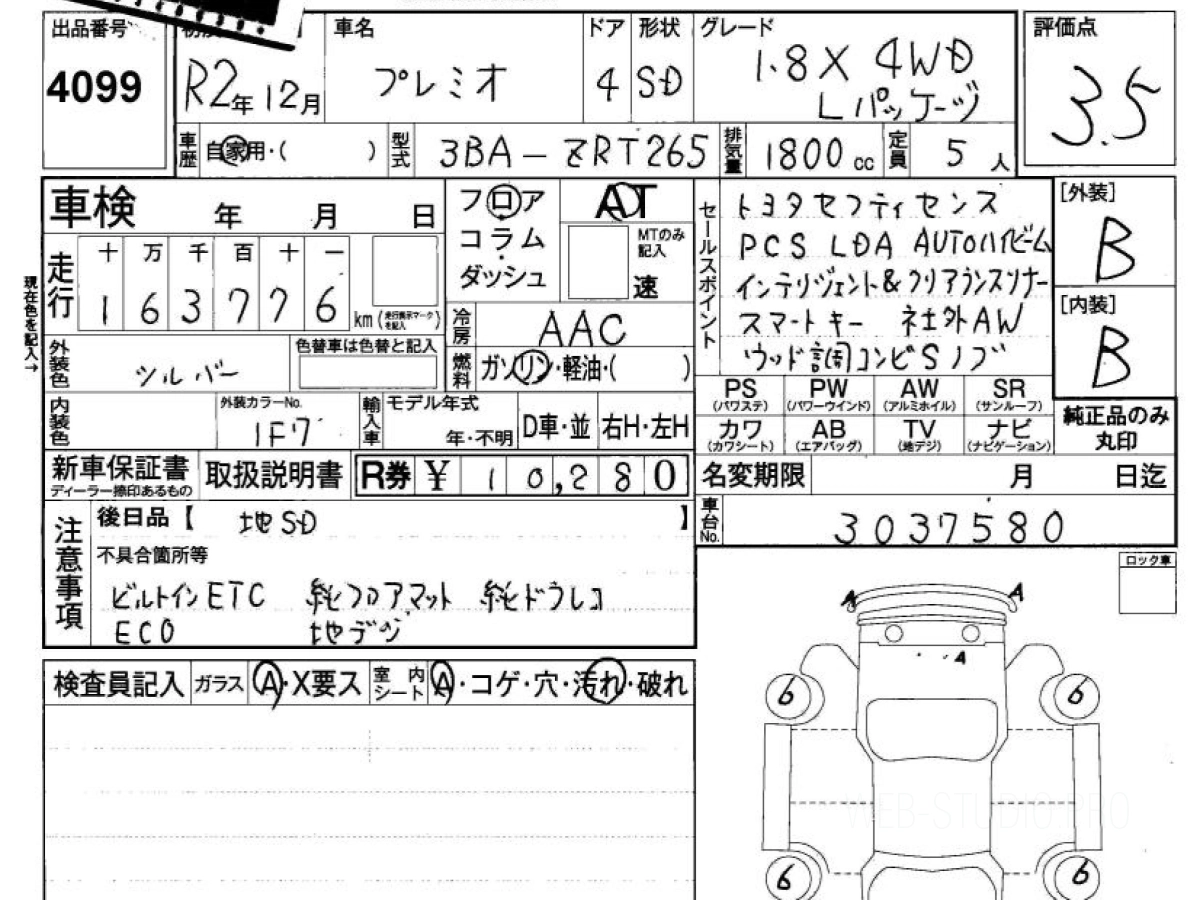 出品番号
4099
R2年12月
車名
プレミオ
ドア
4
形状
SD
グレード
1.8X 4WD
Lパッケージ
評価点
3.5
車歴
自家用・( )
型式
3BA-ZRT265
排気量
1800 cc
定員
5人
車検 年 月 日
フロア
コラム
ダッシュ
AT
MTのみ
記入
速
セールスポイント
トヨタセフティセンス
PCS LDA AUTOハイビーム
インテリジェント&クリアランスソナー
スマートキー 社外AW
ウッド調コンビSノブ
[外装]
B
[内装]
B
現在色を記入→
走行
十 万 千 百 十 一
1 6 3 7 7 6
km(走行メーター交換マークを記入)
冷房
AAC
外装色
シルバー
色替車は色替と記入
燃料
ガソリン・軽油・( )
内装色
外装カラーNo.
1F7
輸入車
モデル年式
年・不明
D車・並
右H・左H
PS
(パワステ)
PW
(パワーウインド)
AW
(アルミホイル)
SR
(サンルーフ)
カワ
(カワシート)
AB
(エアバッグ)
TV
(地デジ)
ナビ
(ナビゲーション)
純正品のみ
丸印
新車保証書
ディーラー捺印あるもの
取扱説明書
R券 ¥ 10,280
名変期限 月 日迄
車台No.
3037580
注意事項
後日品【 地SD 】
不具合箇所等
ビルトインETC 純フロアマット 純ドラレコ
ECO 地デジ
ロック車
検査員記入 ガラス A・X要ス 室内シート A・コゲ・穴・汚れ・破れ
A
A
A
6
6
6
6
WEB-STUDIO.PRO